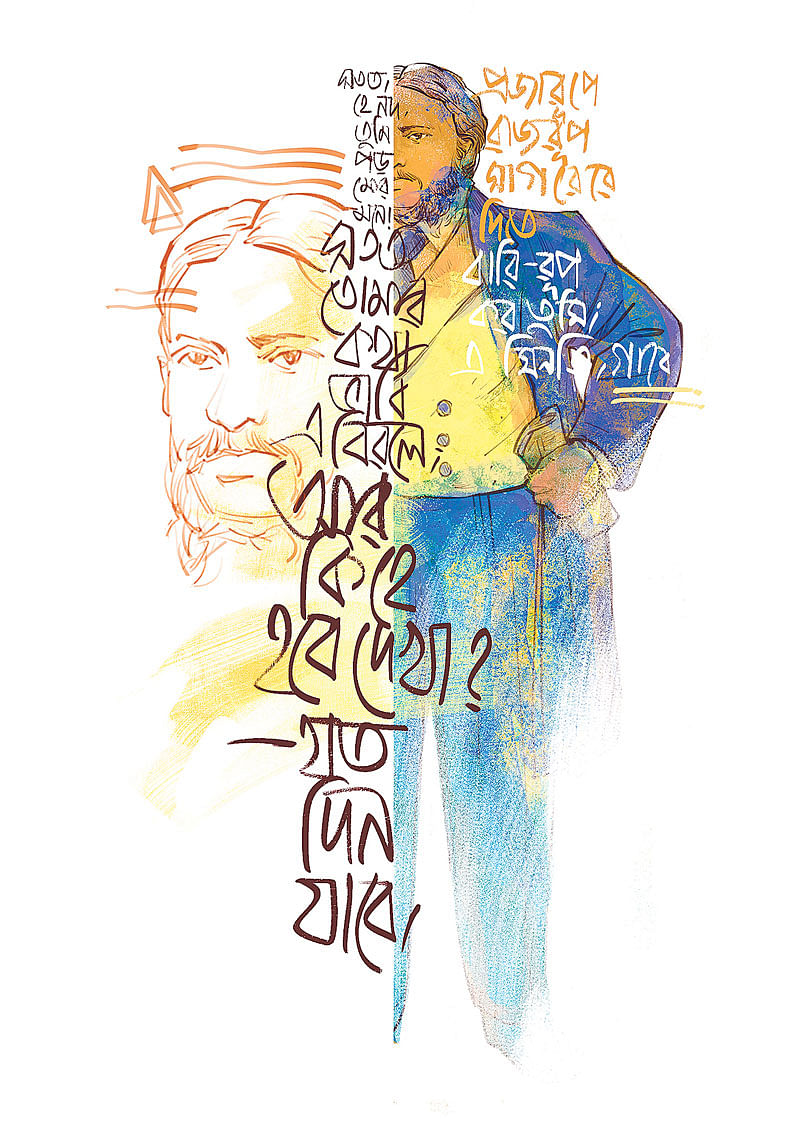 সতত,
হে নদ,
তুমি
পড়
মোর
মনে!
সতত
তোমার
কথা
ভাবি
এ বিরলে;
আর
কি হে
হবে দেখা?
—যত
দিন
যাবে,
প্রজারূপে
রাজরূপ
সাগরেরে
দিতে
বারি-রূপ
কর তুমি;
এ মিনতি, গাবে